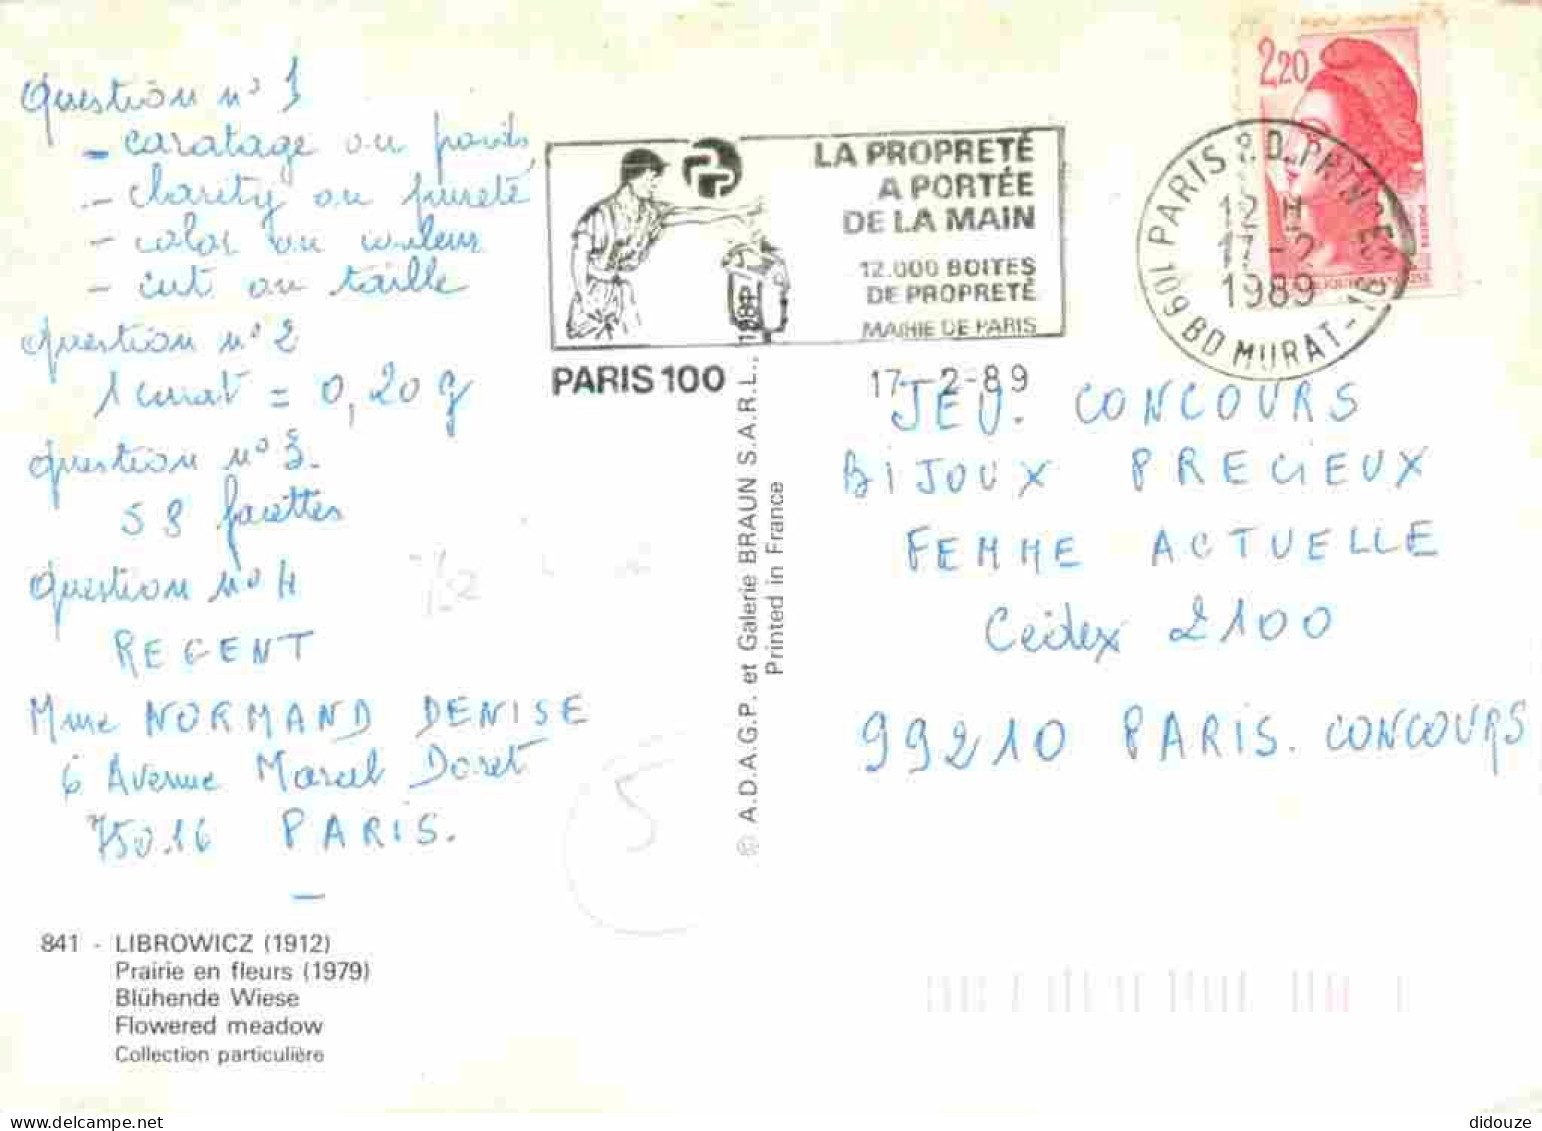 Question n° 1
- caratage ou poids
- clarity ou pureté
- color ou couleur
- cut ou taille
Question n° 2
1 carat = 0,20 g
Question n° 3.
58 facettes
Question n° 4
REGENT
Mme NORMAND DENISE
6 Avenue Marcel Doret
750.16 PARIS.
841 - LIBROWICZ (1912)
Prairie en fleurs (1979)
Blühende Wiese
Flowered meadow
Collection particulière
LA PROPRETÉ
A PORTÉE
DE LA MAIN
12.000 BOITES
DE PROPRETÉ
MAIRIE DE PARIS
PARIS 100
17-2-89
© A.D.A.G.P. et Galerie BRAUN S.A.R.L.,
Printed in France
2,20
PARIS P.D. PRINCES
12 H
17-2
1989
109 BD MURAT-16
JEU. CONCOURS
BIJOUX PRECIEUX
FEMME ACTUELLE
Cedex 2100
99210 PARIS. CONCOURS
5
didouze @ delcampe.net